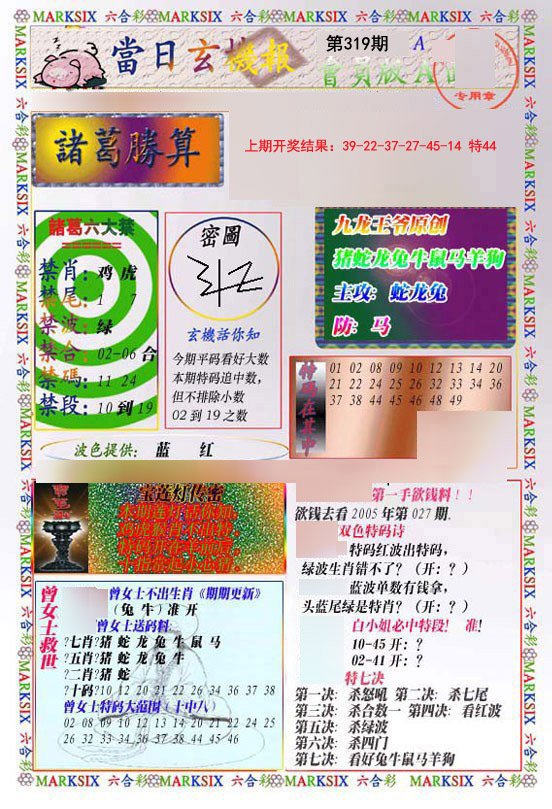 MARKSIX 六合彩 MARKSIX 六合彩 MARKSIX 六合彩 MARKSIX 六合彩
當日玄機報
第319期
A
會員版A
专用章
諸葛勝算
上期开奖结果：39-22-37-27-45-14 特44
諸葛六大禁
禁肖：鸡 虎
禁尾：1 7
禁波：绿
禁合：02-06 合
禁碼：11 24
禁段：10 到 19
密圖
玄機話你知
今期平码看好大数
本期特码追中数，
但不排除小数
02 到 19 之数
九龙王爷原创
猪蛇龙兔牛鼠马羊狗
主攻：蛇龙兔
防：马
特码在其中
01 02 08 09 10 12 13 14 20
21 22 24 25 26 32 33 34 36
37 38 44 45 46 48 49
波色提供： 蓝 红
宝莲灯传密
第一手欲钱料！！
欲钱去看 2005 年第 027 期.
双色特码诗
特码红波出特码，
绿波生肖错不了？（开：？）
蓝波单数有钱拿，
头蓝尾绿是特肖？（开：？）
白小姐必中特段！ 准！
10-45 开：？
02-41 开：？
特七决
第一决：杀怒吼 第二决：杀七尾
第三决：杀合数一 第四决：看红波
第五决：杀绿波
第六决：杀四门
第七决：看好兔牛鼠马羊狗
曾女士救世
曾女士不出生肖《期期更新》
（兔 牛）准 开
曾女士送码料
?七肖?猪 蛇 龙 兔 牛 鼠 马
?五肖?猪 蛇 龙 兔 牛
?二肖?猪 蛇
?十码?10 12 20 21 22 26 34 36 37 38
曾女士特码大范围（十中八）
02 08 09 10 12 13 14 20 21 22 24 25
26 32 33 34 36 37 38 44 45 46
MARKSIX 六合彩 MARKSIX 六合彩 MARKSIX 六合彩 MARKSIX 六合彩